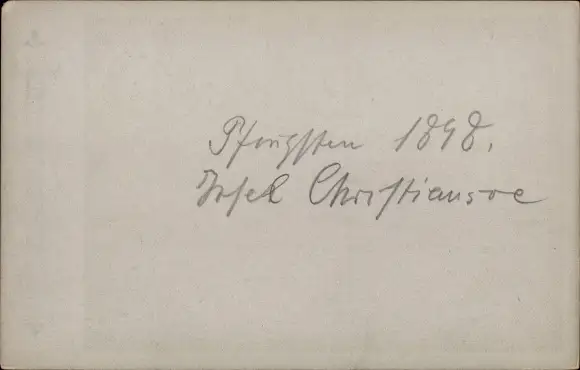 Pfingsten 1898.
Insel Christiansoe